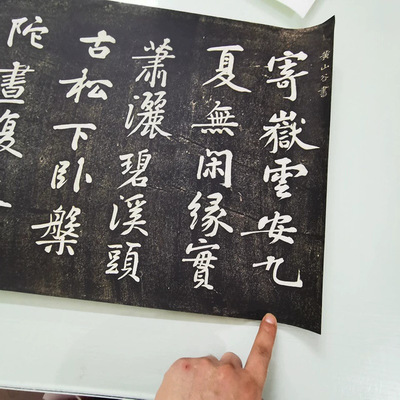 黄山谷書
寄嶽雲安九
夏無閑緣實
蕭灑碧溪頭
古松下臥槃
陀晝復